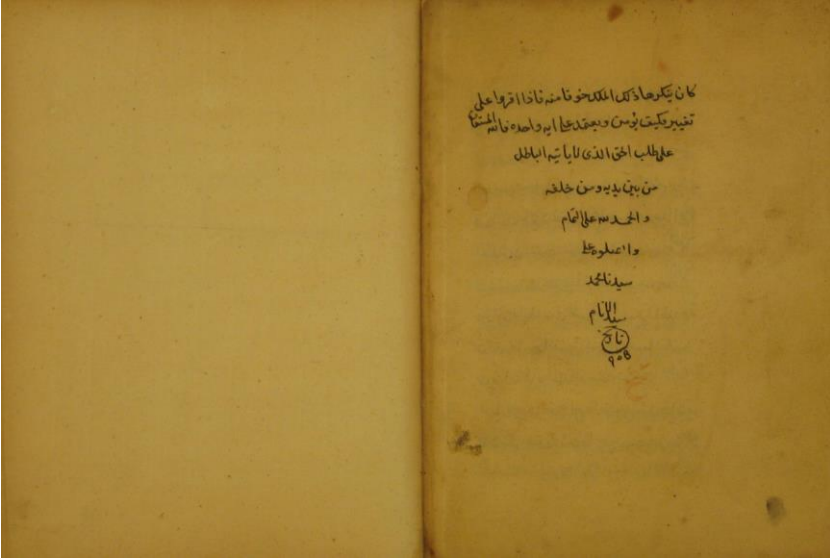 كان ينكرها ذلك الملك خوفا منه فاذا اقروا على
تغييره فكيف يؤمن ويعتمد على ايه واحده فالله المستعان
على طلب الحق الذي لا ياتيه الباطل
من بين يديه ومن خلفه
والحمد لله على التمام
والصلوه على
سيدنا محمد
سيد الانام
تاريخ
٩٠٥